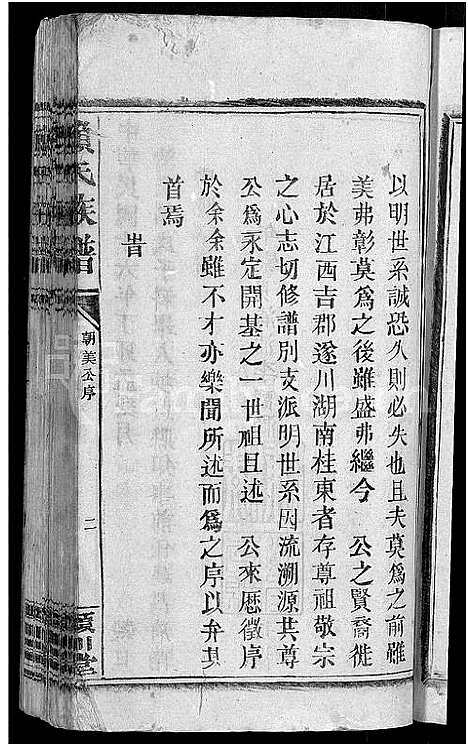 以明世系誠恐久則必失也且夫莫爲之前雖
美弗彰莫爲之後雖盛弗繼今　公之賢裔徙
居於江西吉郡遂川湖南桂東者存尊祖敬宗
之心志切修譜別支派明世系因流溯源共尊
公爲永定開基之一世祖且述　公來歷徵序
於余余雖不才亦樂聞所述而爲之序以弁其
首焉
旹
氏族譜
朝美公序
二
堂